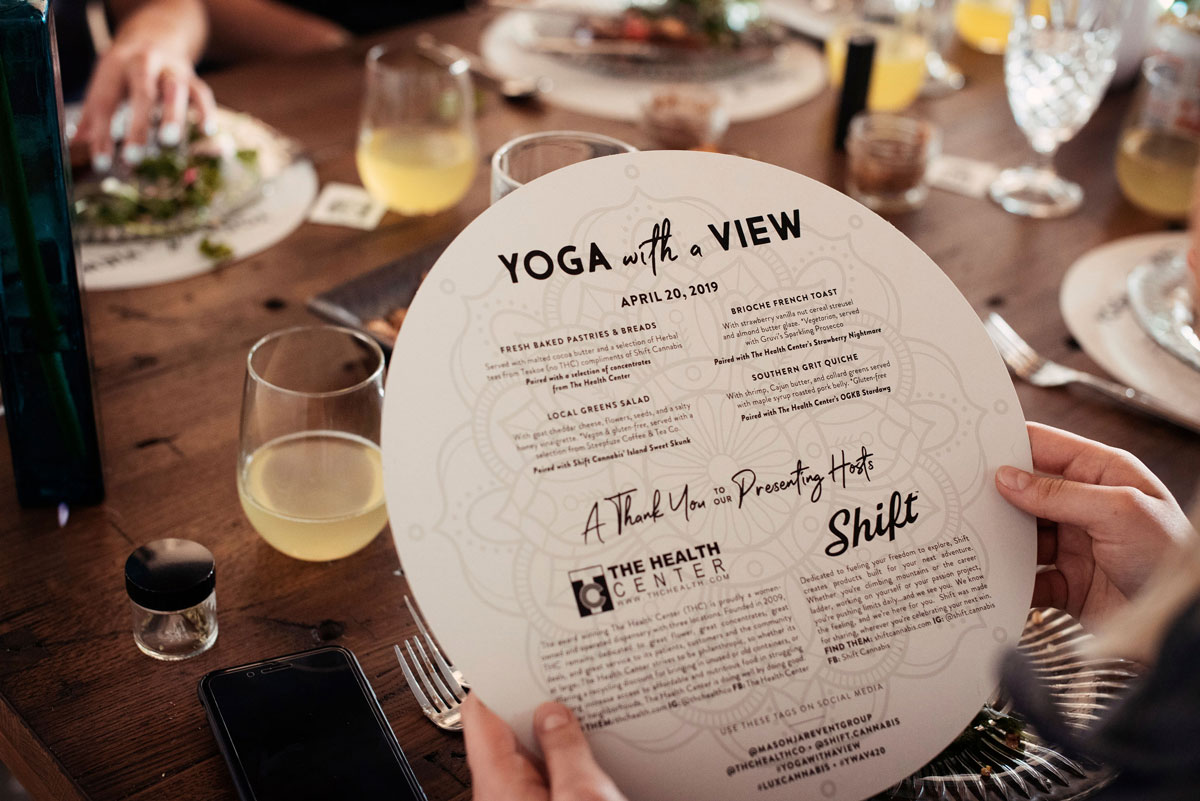 YOGA with a VIEW
APRIL 20, 2019
FRESH BAKED PASTRIES & BREADS
Served with malted cocoa butter and a selection of Herbal
teas from Teakoe (no THC) compliments of Shift Cannabis
Paired with a selection of concentrates
from The Health Center
LOCAL GREENS SALAD
With goat cheddar cheese, flowers, seeds, and a salty
honey vinaigrette. *Vegan & gluten-free, served with a
selection from Steepfuze Coffee & Tea Co.
Paired with Shift Cannabis' Island Sweet Skunk
BRIOCHE FRENCH TOAST
With strawberry vanilla nut cereal streusel
and almond butter glaze. *Vegetarian, served
with Gruvi's Sparkling Prosecco
Paired with The Health Center's Strawberry Nightmare
SOUTHERN GRIT QUICHE
With shrimp, Cajun butter, and collard greens served
with maple syrup roasted pork belly. *Gluten-free
Paired with The Health Center's OGKB Stardawg
A Thank You TO OUR Presenting Hosts
THE HEALTH
CENTER
WWW.THCHEALTH.COM
The award winning The Health Center (THC) is proudly a women-
owned and operated dispensary with three locations. Founded in 2009,
THC remains dedicated to great flower, great concentrates, great
deals, and great service to its patients, customers and the community
at large. The Health Center strives to be philanthropic, so whether its
a recycling discount for bringing in unused or old containers, or
increase access to affordable and nutritious food to struggling
neighborhoods, The Health Center is doing well by doing good.
thchealth.com IG: @thchealthco FB: The Health Center
Shift
Dedicated to fueling your freedom to explore, Shift
creates products built for your next adventure.
Whether you're climbing mountains or the career
ladder, working on yourself or your passion project,
you're pushing limits daily...and we see you. We know
the feeling, and we're here for you. Shift was made
for sharing, wherever you're celebrating your next win.
FIND THEM: shiftcannabis.com IG: @shift.cannabis
FB: Shift Cannabis
USE THESE TAGS ON SOCIAL MEDIA
@MASONJAREVENTGROUP
@THCHEALTHCO • @SHIFT.CANNABIS
#YOGAWITHAVIEW
#LUXCANNABIS • #YWAV420